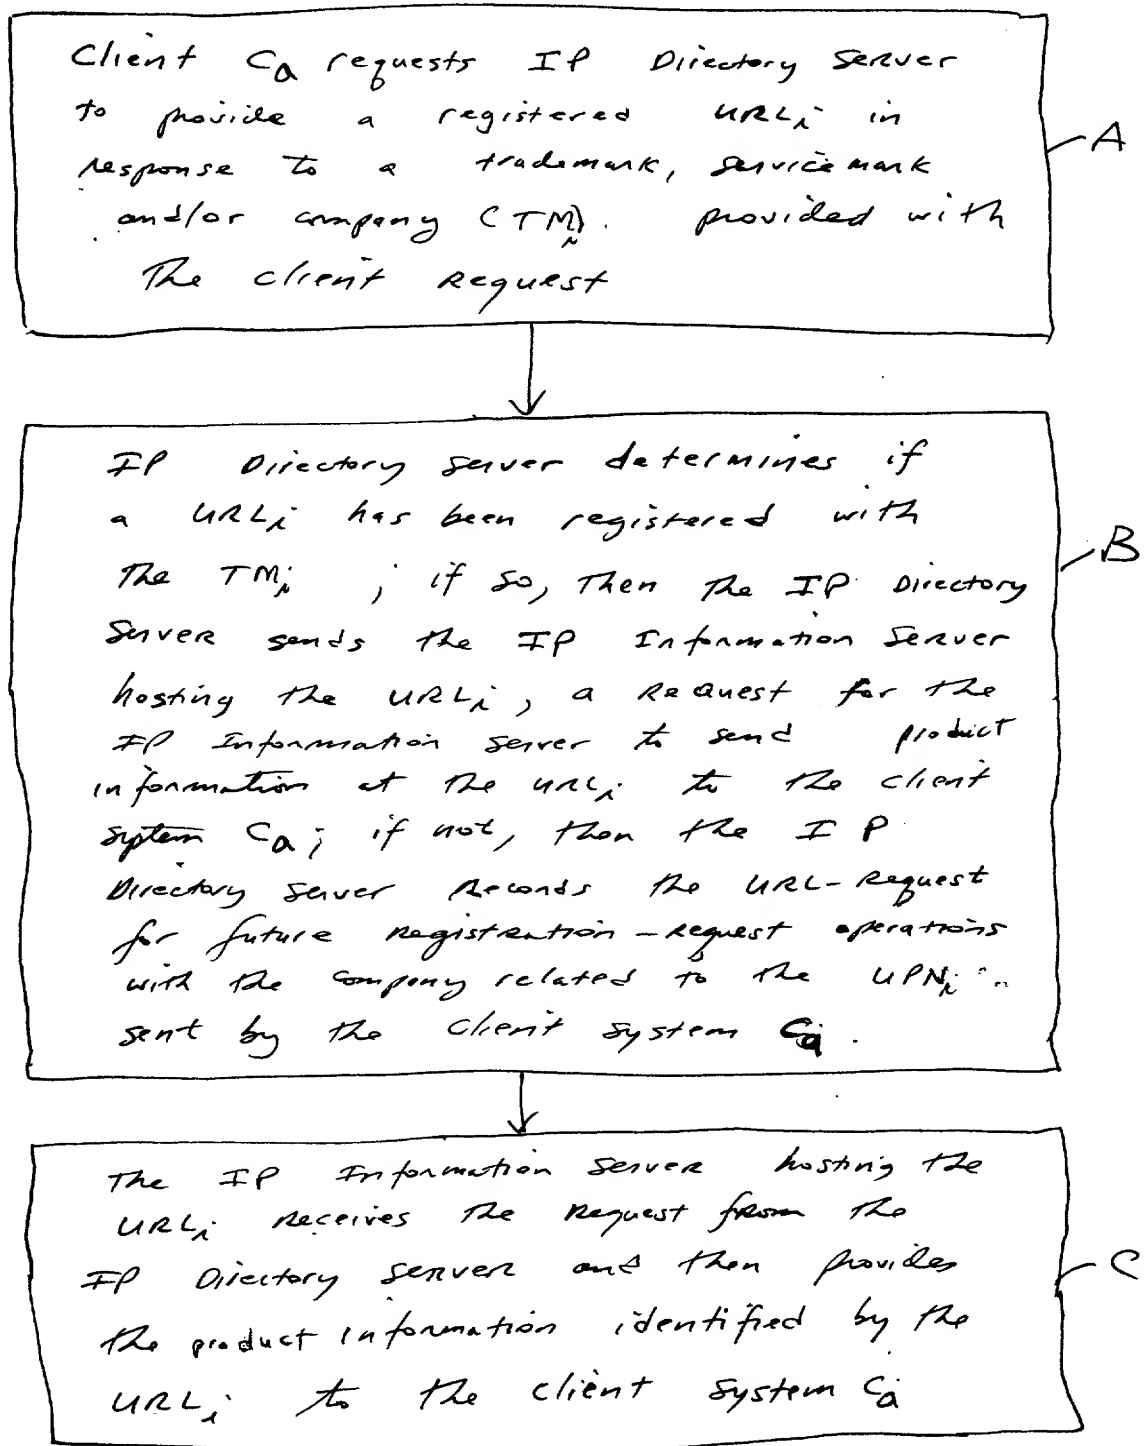 Client Ca requests IP Directory Server
to provide a registered URLi in
response to a trademark, servicemark
and/or company (TMi). provided with
The client Request
A
IP Directory Server determines if
a URLi has been registered with
The TMi ; if so, Then The IP Directory
Server sends the IP Information Server
hosting the URLi, a Request for the
IP Information Server to send product
information at the URLi to the client
system Ca; if not, then the IP
Directory Server Records the URL-Request
for future Registration-Request operations
with the company related to the UPNi
sent by the Client System Ca.
B
The IP Information Server hosting the
URLi Receives the Request from the
IP Directory Server and then provides
the product information identified by the
URLi to the client System Ca
C